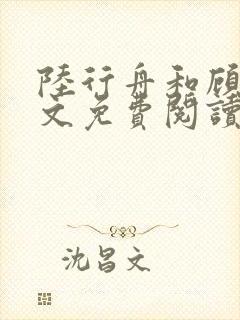 陸行舟和顧
文免費閱讀
沈昌文